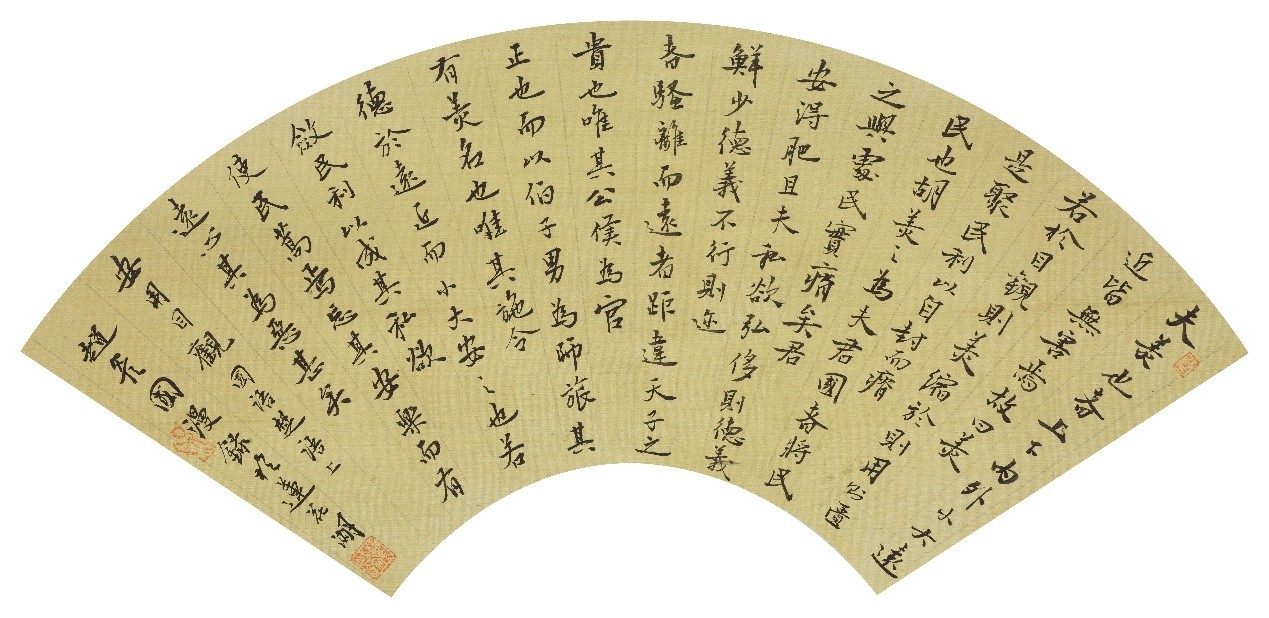 夫美也者上下內外小大遠
近皆無害焉故曰美
若於目観則美縮於則用則匱
是聚民利以自封而瘠
民也胡美〻為夫君國者將民
之與處民實瘠矣君
安得肥且夫私欲弘侈則德義
鮮少德義不行則迩
者騷離而遠者距違天子之
貴也唯其公侯為官
正也而以伯子男為師旅其
有美名也唯其施令
德於遠近而小大安〻也若
斂民利以成其私欲
使民蒿焉忘其安樂而有
遠心其為惡甚矣
安用目觀 國語楚語上
趙國漫錄於蓮花湖